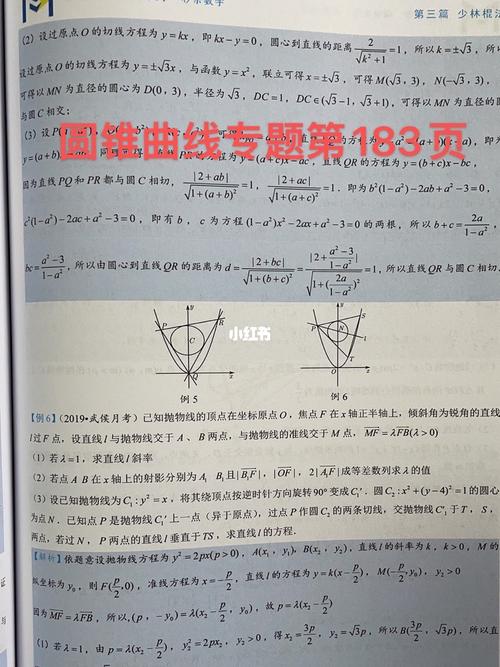 第三篇 少林棍法
(2) 设过原点O的切线方程为y=kx，即kx-y=0，圆心到直线的距离\frac{2}{\sqrt{k^2+1}}=1，所以k=±\sqrt{3}，所以
设过原点O的切线方程为y=±\sqrt{3}x，与函数y=x^2，联立可得x=±\sqrt{3}，可得M(\sqrt{3},3)，N(-\sqrt{3},3)，
可得以MN为直径的圆心为D(0,3)，半径为\sqrt{3}，DC=1，DC∈(\sqrt{3}-1，\sqrt{3}+1)，可得以MN为直径的圆
与圆C相交；
(3) 设P(
圆锥曲线专题第183页
y=(a+b)x-ab，
y=(a+c)x-ac，
直线QR的方程为y=(b+c)x-bc，
因为直线PQ和PR都与圆C相切，\frac{|2+ab|}{\sqrt{1+(a+b)^2}}=1，\frac{|2+ac|}{\sqrt{1+(a+c)^2}}=1，即为b^2(1-a^2)-2ab+a^2-3=0，
c^2(1-a^2)-2ac+a^2-3=0，即有b，c为方程(1-a^2)x^2-2ax+a^2-3=0的两根，所以b+c=\frac{2a}{1-a^2}，
bc=\frac{a^2-3}{1-a^2}，所以由圆心到直线QR的距离为d=\frac{|2+bc|}{\sqrt{1+(b+c)^2}}=\frac{|2+\frac{a^2-3}{1-a^2}|}{\sqrt{1+(\frac{2a}{1-a^2})^2}}=1，所以直线QR与圆C相切.
y
P
R
C
Q
x
例5
小红书
y
P
S
N
l
T
O
x
例6
【例6】(2019•武侯月考) 已知抛物线的顶点在坐标原点O，焦点F在x轴正半轴上，倾斜角为锐角的直线
l过F点，设直线l与抛物线交于A、B两点，与抛物线的准线交于M点，\overline{MF}=λ\overline{FB}(λ>0)
(1) 若λ=1，求直线l斜率
(2) 若点A B在x轴上的射影分别为A₁ B₁且|\overline{B₁F}|，|\overline{OF}|，2|\overline{A₁F}|成等差数列求λ的值
(3) 设已知抛物线为C₁:y^2=x，将其绕顶点按逆时针方向旋转90°变成C₁′. 圆C₂:x^2+(y-4)^2=1的圆心
为点N. 已知点P是抛物线C₁′上一点(异于原点)，过点P作圆C₂的两条切线，交抛物线C₁′于T，S，
两点，若过N，P两点的直线l垂直于TS，求直线l的方程.
【解析】依题意设抛物线方程为y^2=2px(p>0)，A(x₁，y₁)，B(x₂，y₂)，直线l的斜率为k，k>0，M的
纵坐标为y₀，则F(\frac{p}{2},0)，准线方程为x=-\frac{p}{2}，直线l的方程为y=k(x-\frac{p}{2})，M(-\frac{p}{2},y₀)，y₂>0
因为\overline{MF}=λ\overline{FB}，所以，(p，-y₀)=λ(x₂-\frac{p}{2}，y₂)，故p=λ(x₂-\frac{p}{2})
(1) 若λ=1，由p=λ(x₂-\frac{p}{2})，y₂^2=2px₂，y₂>0，得x₂=\frac{3p}{2}，y₂=\sqrt{3}p，所以B(\frac{3p}{2}，\sqrt{3}p)，